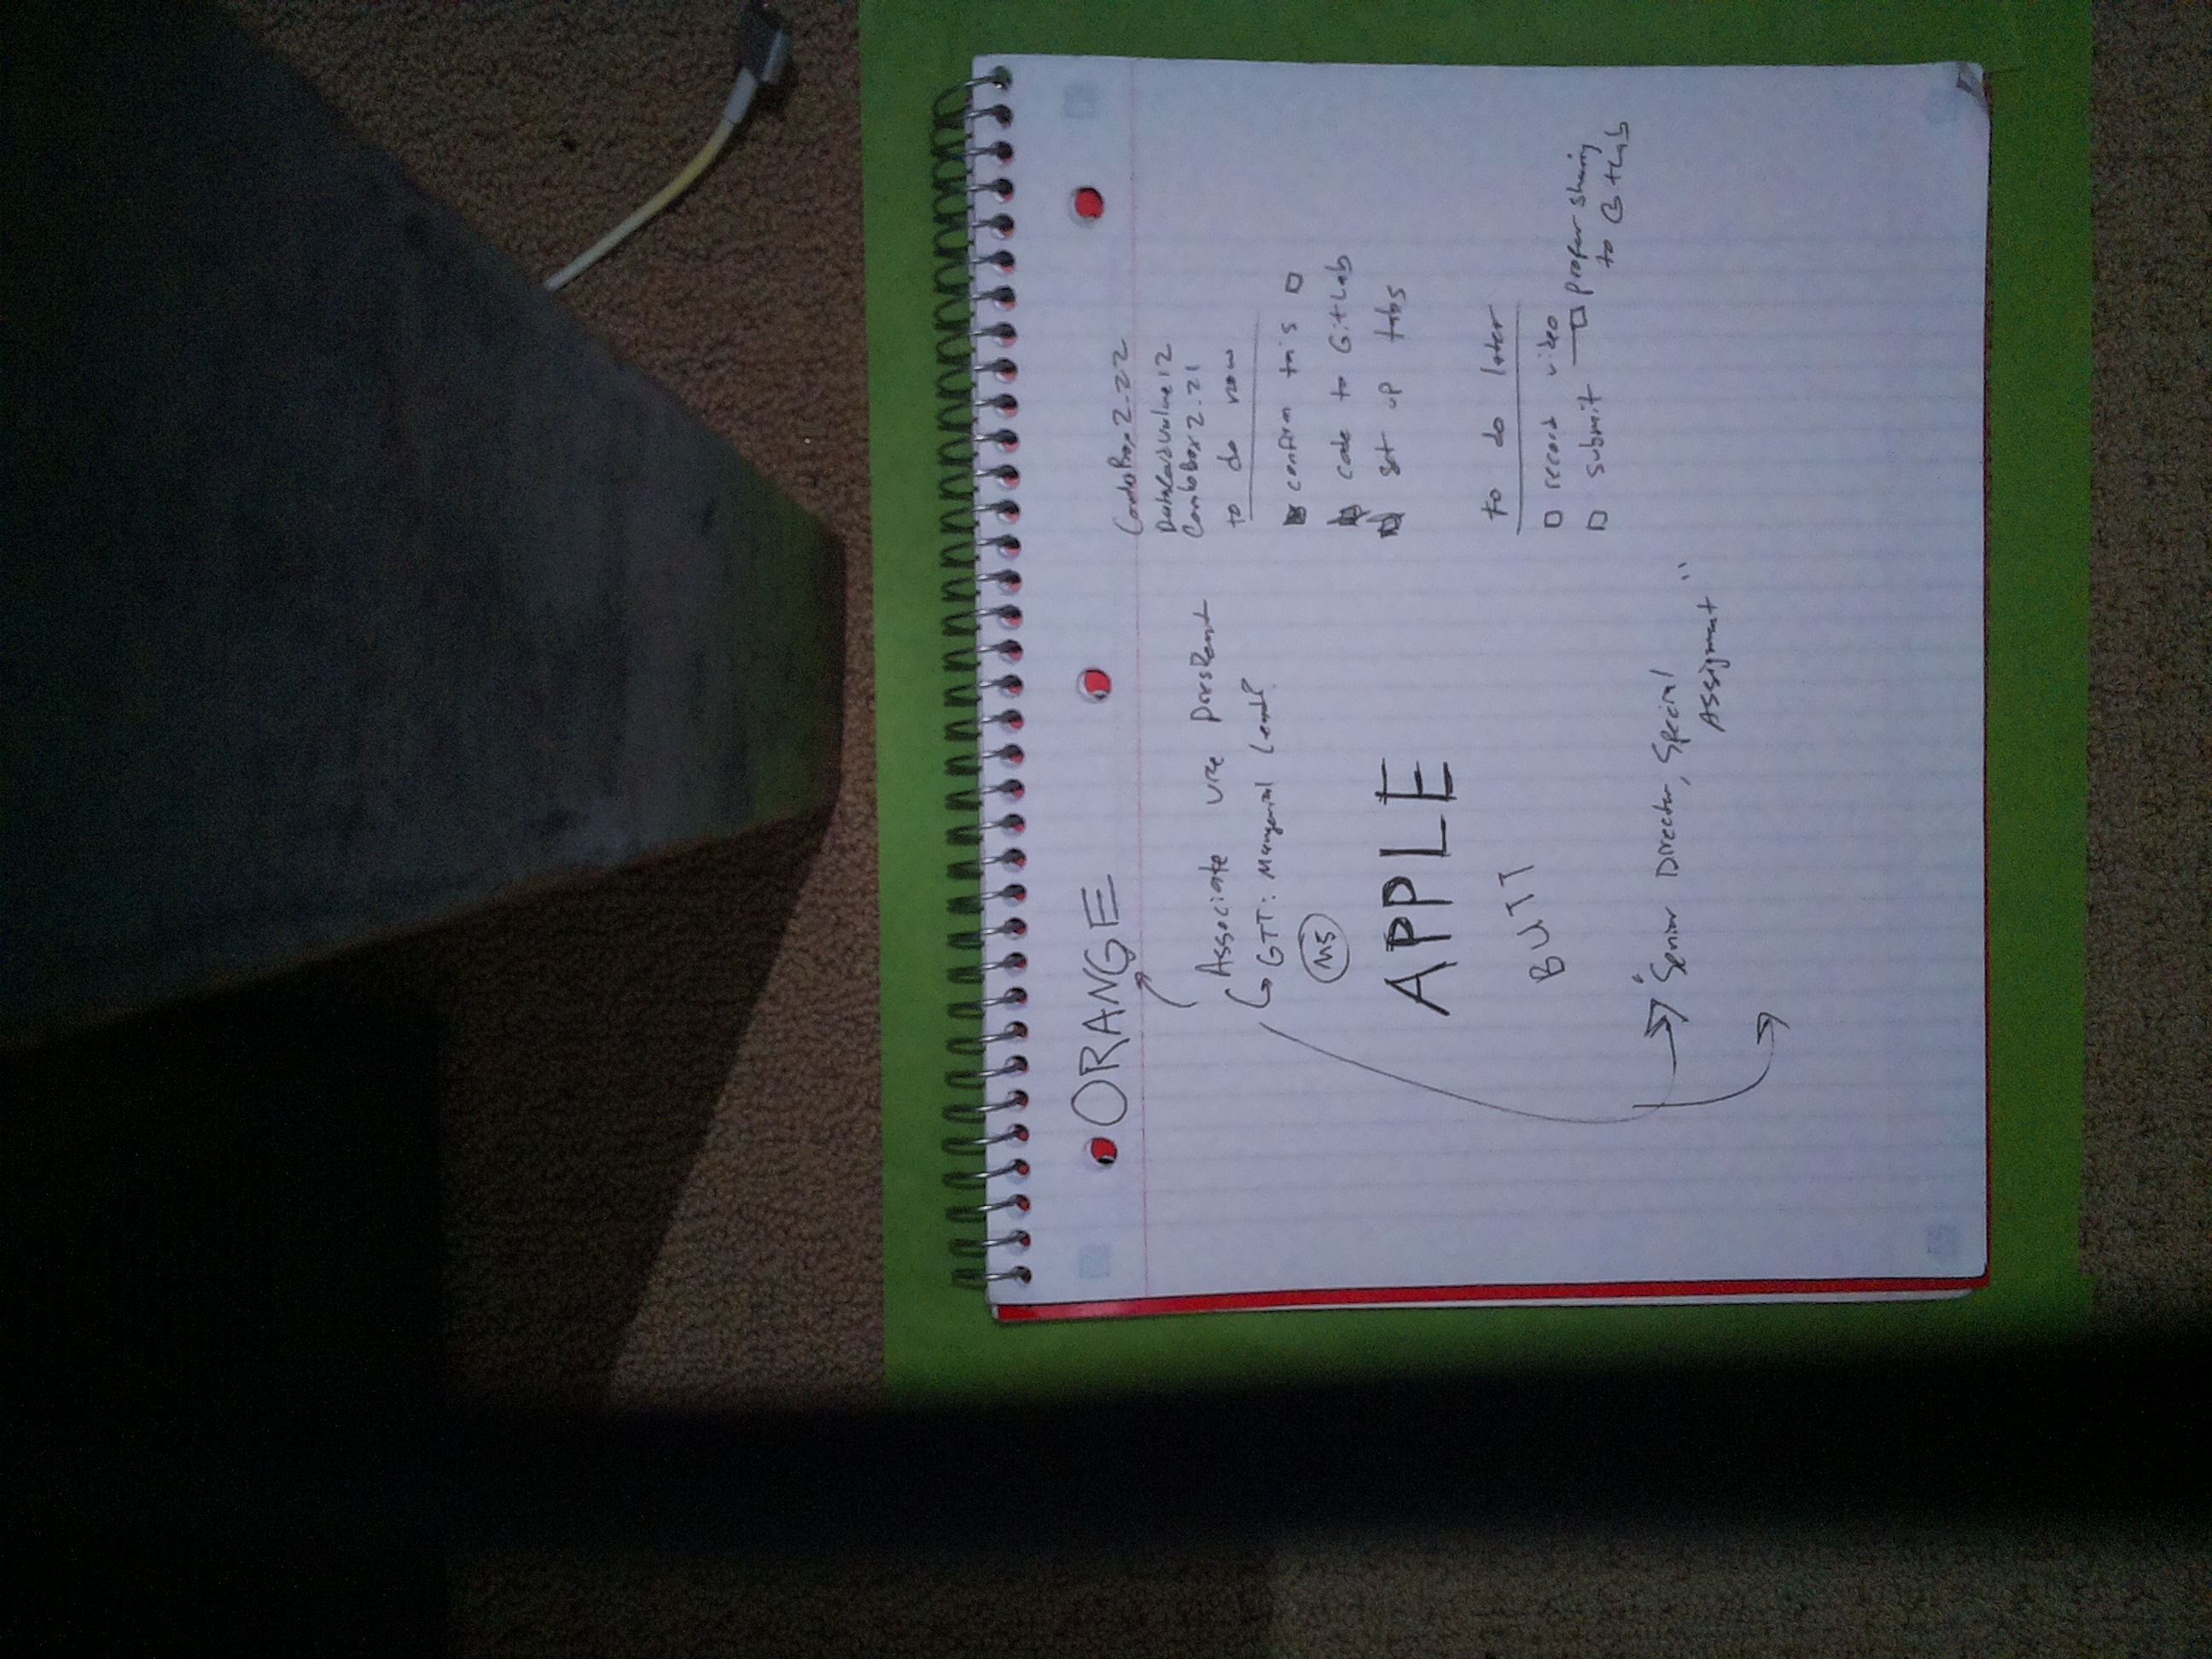 ORANGE
Associate vre
GTT: Managerial Lead?
MS
APPLE
BUTT
"Senior Director, Special
Assignment"
ComboBox2.22
DataCardValue12
ComboBox2.21
to do now
confirm this
code to GitLab
set up tabs
to do later
record video
submit
proper sharing
to